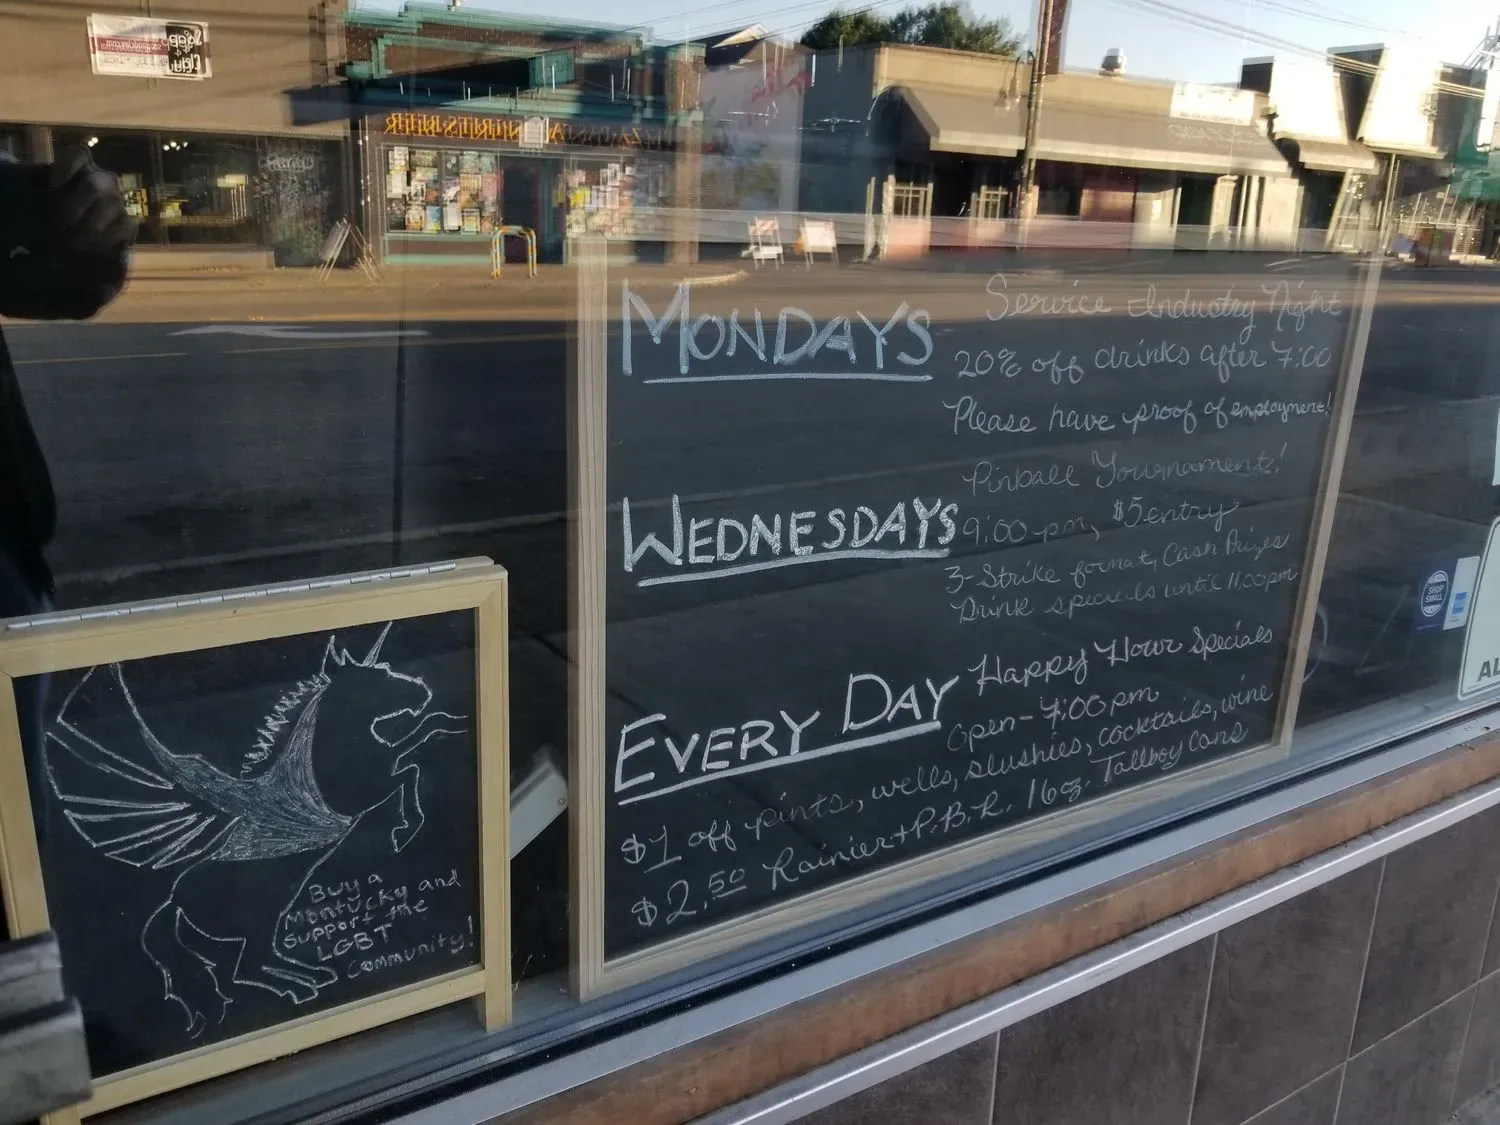 MONDAYS
Service Industry Night
20% off drinks after 7:00
Please have proof of employment!
WEDNESDAYS
Pinball Tournament!
9:00 pm, $5 entry
3-Strike format, Cash Prizes
Drink specials until 11:00pm
EVERY DAY
Happy Hour Specials
Open - 7:00pm
$1 off pints, wells, slushies, cocktails, wine
$2.50 Rainier + P.B.R. 16oz. Tallboy Cans
Buy a
Montucky and
Support the
LGBT
Community!
SHOP
SMALL
AL